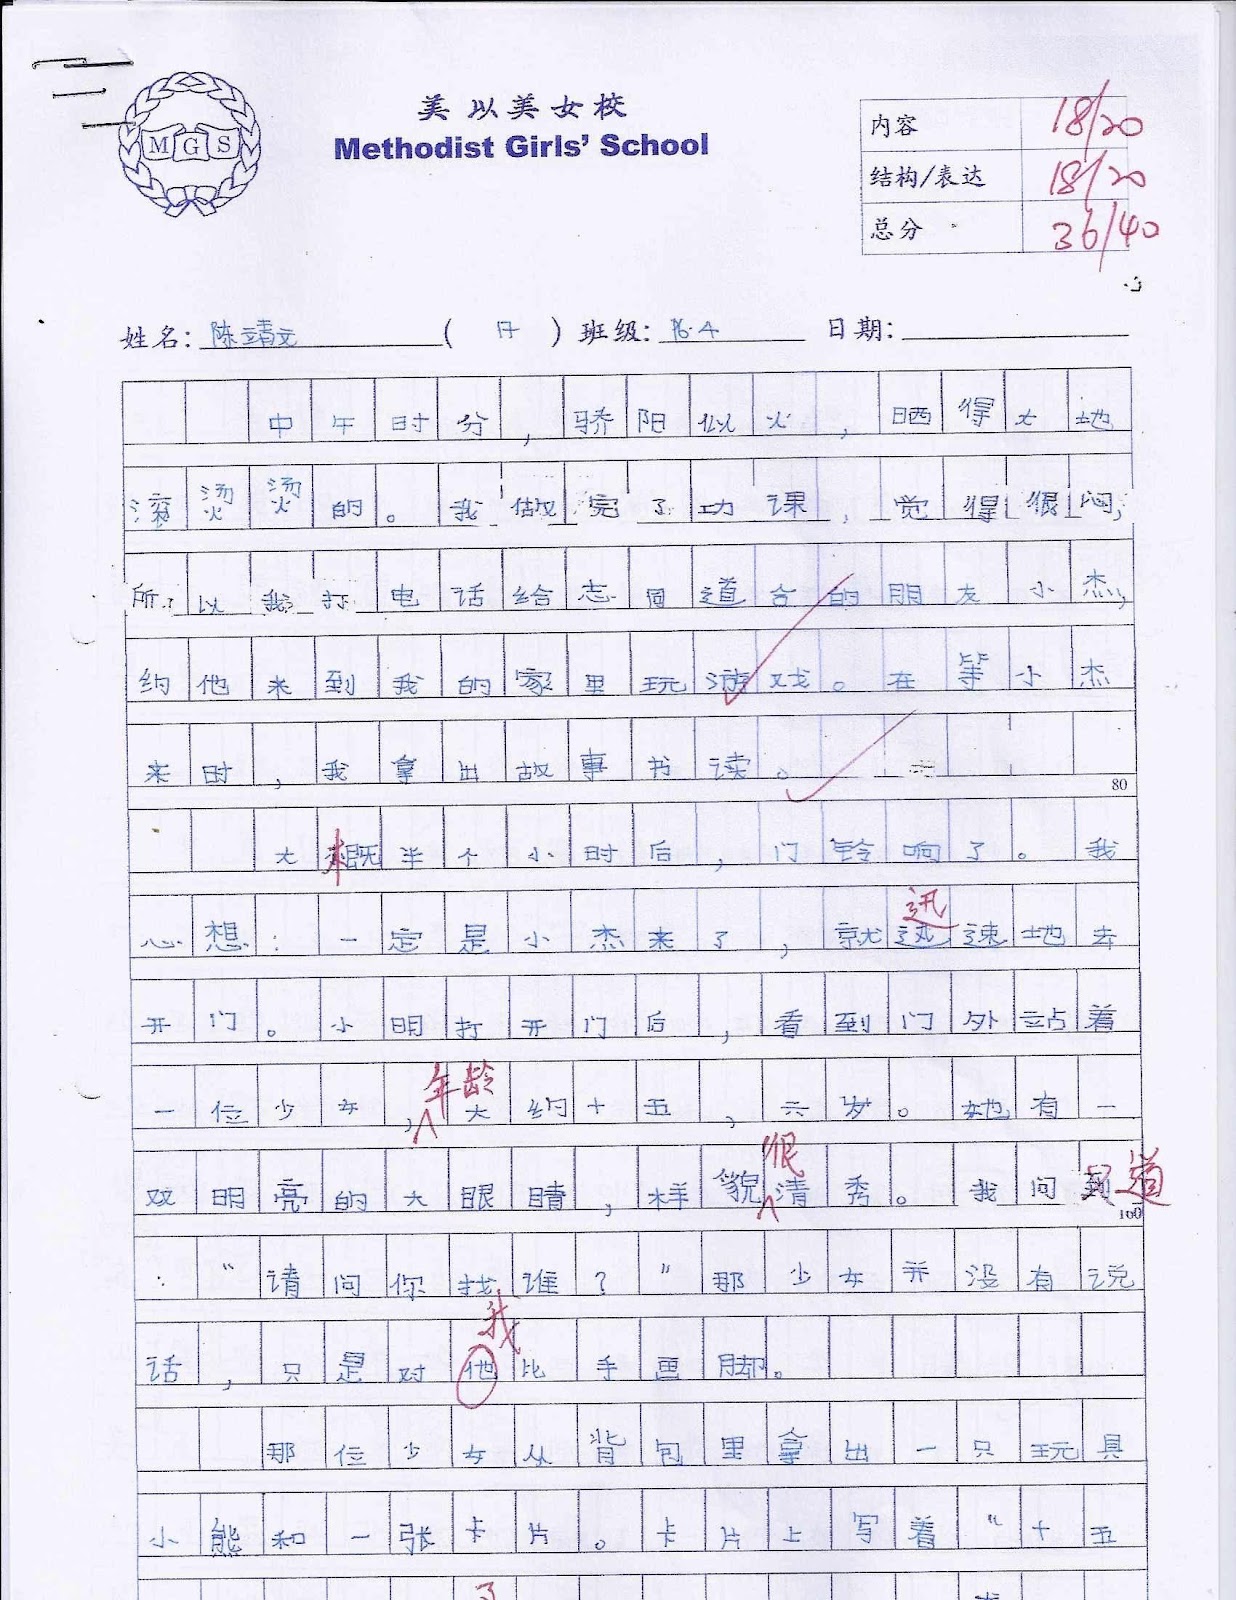 美以美女校
Methodist Girls' School
MGS
内容 18/20
结构/表达 18/20
总分 36/40
姓名: 陈靖文 ( 17 ) 班级: P6.4 日期:
中午时分，骄阳似火，晒得大地
滚烫烫的。我做完了功课，觉得很闷，
所以我打电话给志同道合的朋友小杰，
约他来到我的家里玩游戏。在等小杰
来时，我拿出故事书读。
80
大概半个小时后，门铃响了。我
心想：一定是小杰来了，就迅速地去
迅
开门。小明打开门后，看到门外站着
年龄
一位少女，大约十五，六岁。她有一
很
双明亮的大眼睛，样貌清秀。我问到道
160
：“请问你找谁？”那少女并没有说
我
话，只是对他比手画脚。
那位少女从背包里拿出一只玩具
小熊和一张卡片。卡片上写着“十五